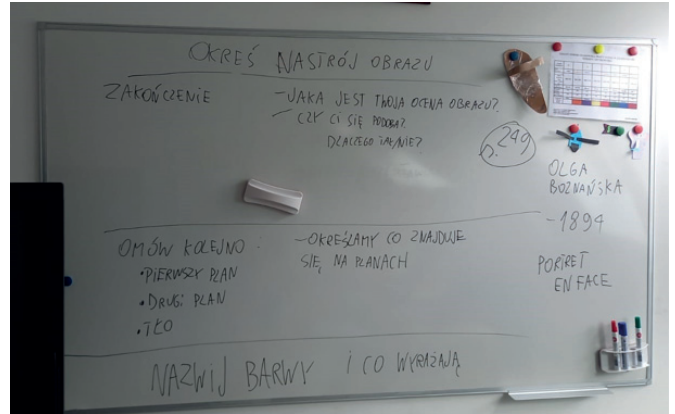 OKREŚ NASTRÓJ OBRAZU
ZAKOŃCZENIE
- JAKA JEST TWOJA OCENA OBRAZU?
- CZY CI SIĘ PODOBA?
DLACZEGO TAK/NIE?
249
OLGA
BOZNAŃSKA
- 1894
PORTRET
EN FACE
OMÓW KOLEJNO:
• PIERWSZY PLAN
• DRUGI PLAN
• TŁO
- OKREŚLAMY CO ZNAJDUJE
SIĘ NA PLANACH
NAZWIJ BARWY I CO WYRAŻAJĄ